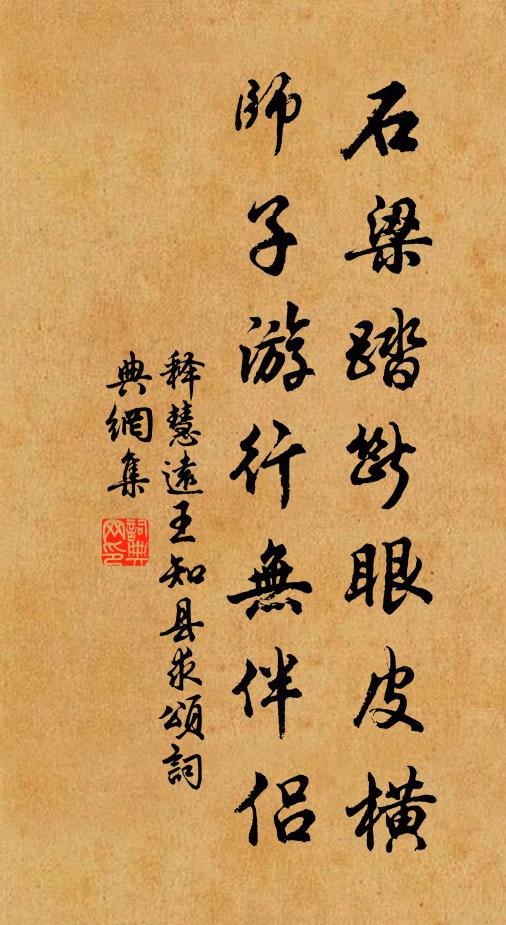 石梁踏斷眼皮橫
師子游行無伴侶
释慧遠王知县求頌詞
典網集
詞典网印